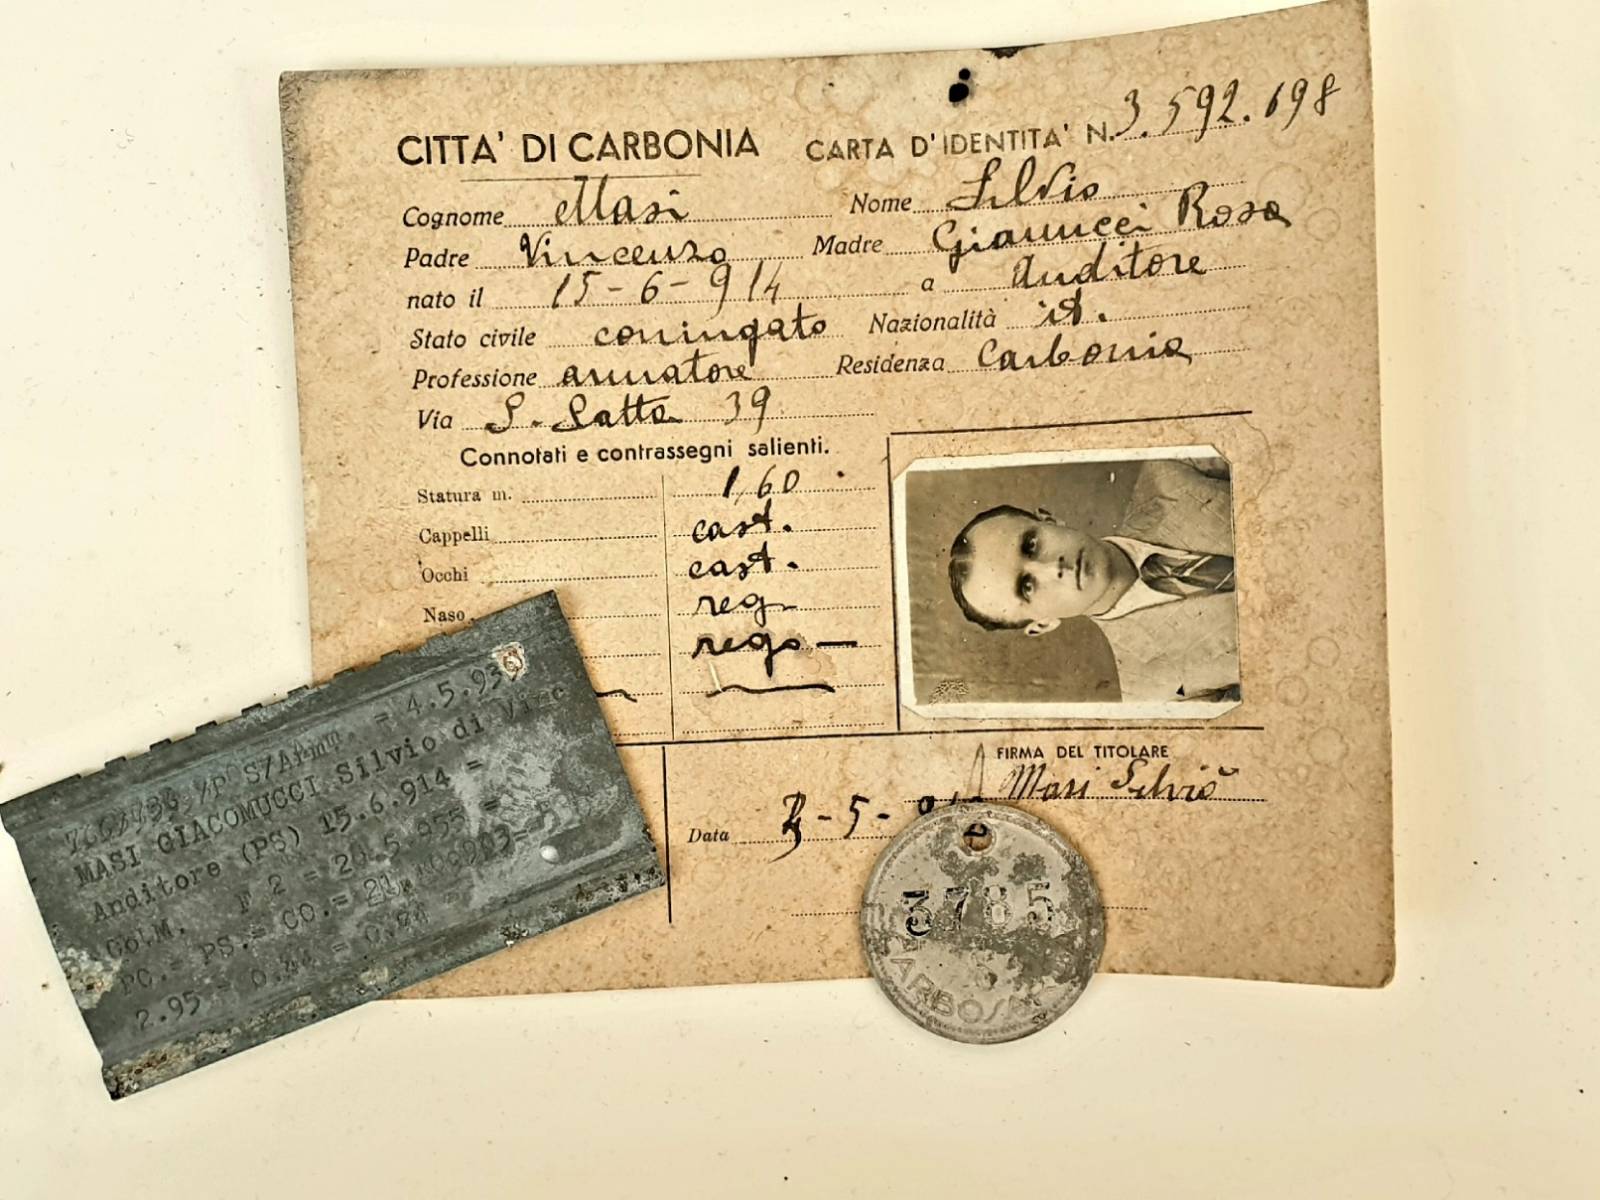 CITTA' DI CARBONIA CARTA D'IDENTITA' N. 3.592.698
Cognome Masi Nome Silvio
Padre Vincenzo Madre Giannucci Rosa
nato il 15-6-914 a Auditore
Stato civile coniugato Nazionalità it.
Professione armatore Residenza Carbonia
Via S. Satta 39
Connotati e contrassegni salienti.
Statura m. 1,60
Cappelli cast.
Occhi cast.
Naso reg.
rego
FIRMA DEL TITOLARE
Masi Silvio
Data -5-
S/Armu. = 4.5.93
MASI GIACOMUCCI Silvio di Vinc
Anditore (PS) 15.6.914 =
Col.M. F 2 = 20.5.955 =
PC.= PS.= CO.= 21.
2.95 =
3785
CARBOSARDA